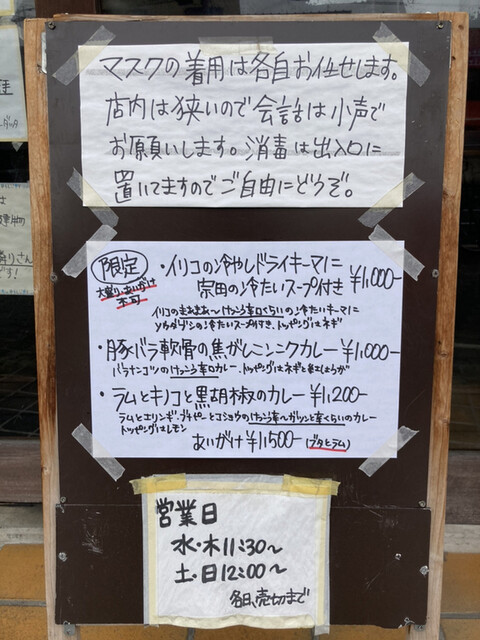 マスクの着用は各自お任せします。
店内は狭いので会話は小声で
お願いします。消毒は出入口に
置いてますのでご自由にどうぞ。
限定
大盛り・あいがけ
不可
・イリコの冷やしドライキーマに
宗田の冷たいスープ付き ¥1,000-
イリコのまあまあ〜けっこう辛口くらいの冷たいキーマに
ソウダブシの冷たいスープ付き、トッピングはネギ
・豚バラ軟骨の焦がしニンニクカレー ¥1,000-
バラナンコツのけっこう辛口カレー、トッピングはネギと紅しょうが
・ラムとキノコと黒胡椒のカレー ¥1,200-
ラムとエリンギ・ブナピーとコショウのけっこう辛〜ガツンと辛くらいのカレー
トッピングはレモン
あいがけ ¥1,500- (ブタとラム)
営業日
水・木 11:30〜
土・日 12:00〜
各日、売切まで